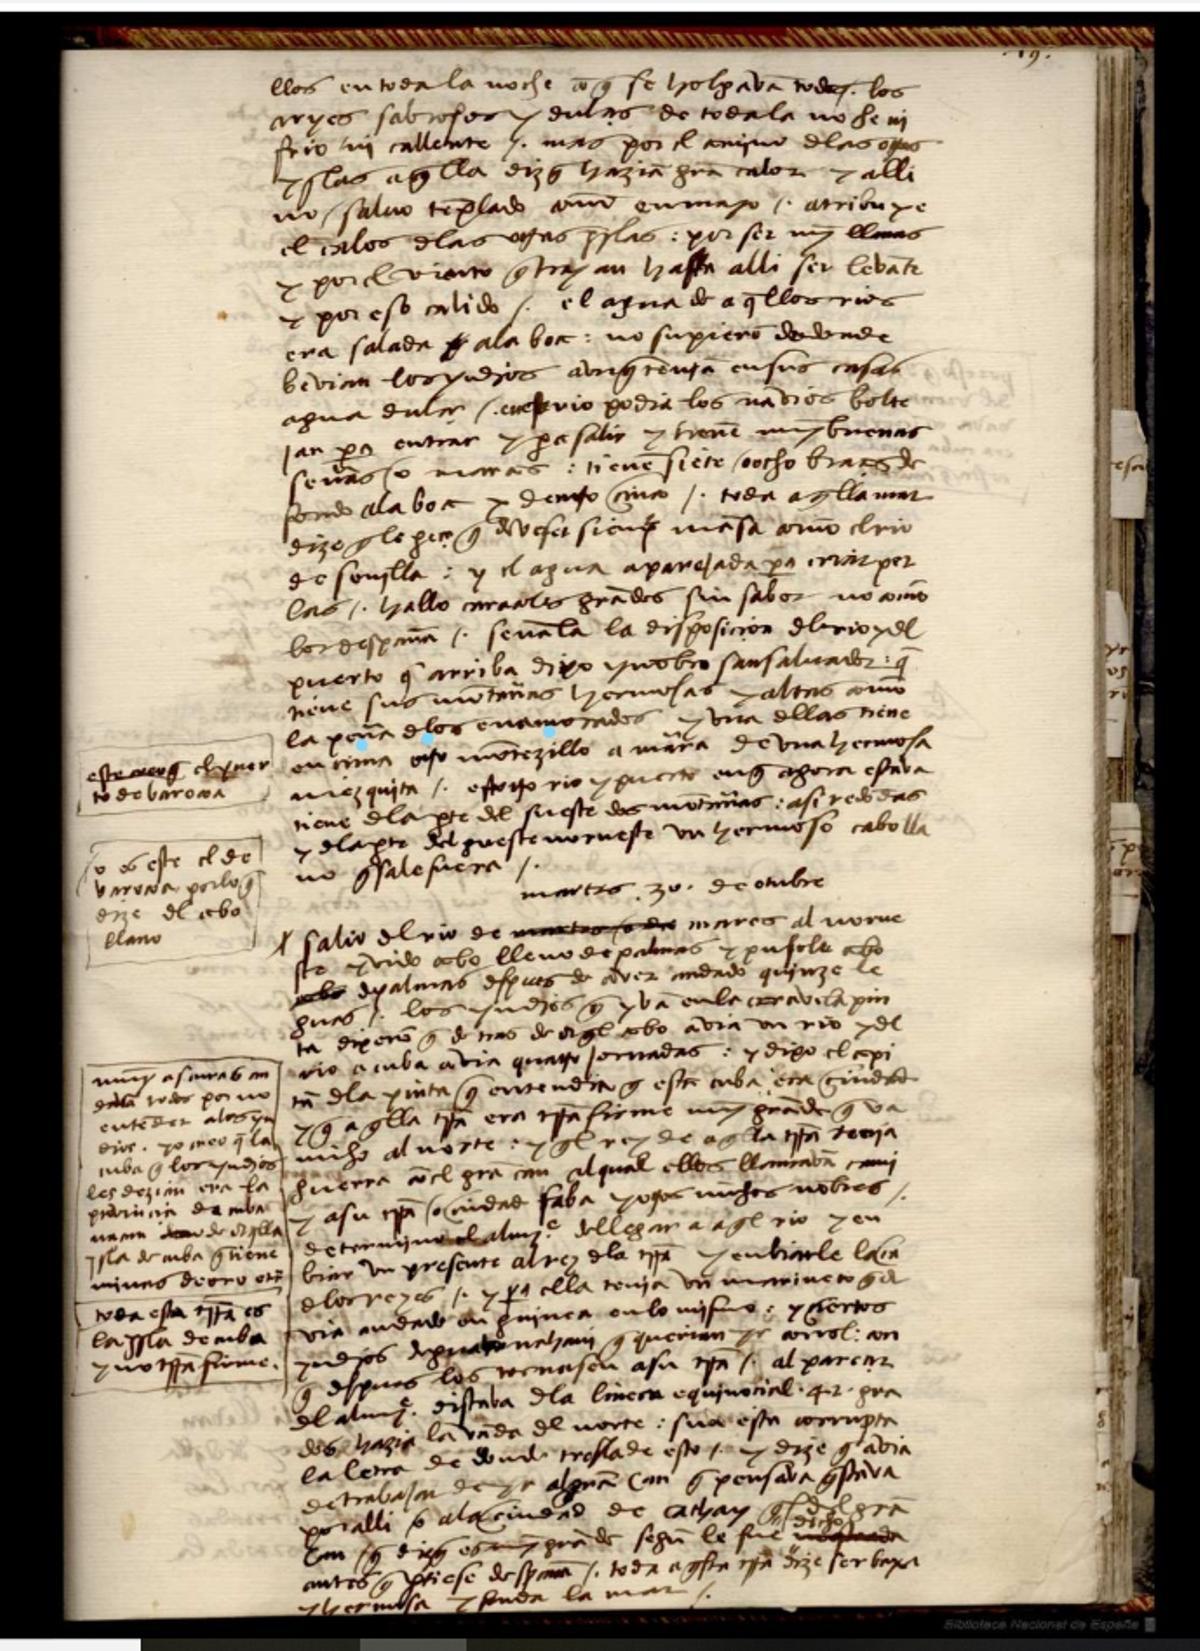 19.
llos en toda la noche a q̃ se holgavã todos /. los
ayres sabrosos y dulçes de toda la noche ni
frio ni caliente /. mas por el camino dlas otras
yslas aq̃lla dizq̃ hazia grã calor y alli
no / salvo tẽplado como en mayo /. atribuye
el calor dlas otras yslas : por ser muy llanas
y por el viento q̃ trayan hasta alli ser levante
y por eso calido /. el agua de aq̃llos rios
era salada a la boca : no supierõ de donde
bevian los yndios avnq̃ teniã en sus casas
agua dulçe /. en este rio podiã los navios bolte
jar pa entrar y pa salir y tienẽ muy buenas
señas o marcas : tienẽ siete / o ocho braças de
fondo a la boca y dentro çinco /. toda aq̃lla mar
dize q̃ le pareçe q̃ deve ser siempre mãsa como el rio
de sevilla : y el agua aparejada pa criar per
las /. hallo caracoles grãdes sin sabor no como
los despaña /. señala la disposiçion del rio y dl
puerto q̃ arriba dixo y nõbro san salvador : q̃
tiene sus mõtañas hermosas y altas como
la peña dlos enamorados y una dellas tiene
ençima otro mõtezillo a mãra de una hermosa
mezquita /. este otro rio y puerto en q̃ agora estava
tiene dla pte del sueste dos mõtañas : asi redõdas
y dla pte del gueste norueste un hermoso cabo lla
no q̃ sale fuera /.
este creo q̃ el puer
to de baracoa
o es este el de
baracoa por lo q̃
dize dl cabo
llano
martes .30. de otubre
salio del rio de martes o de mares al norue
ste y vido cabo lleno de palmas y pusole cabo
cabo de palmas dspues de aver andado quinze le
guas /. los yndios q̃ yvã en la caravela pin
ta dixerõ q̃ detras de aql̃ cabo avia un rio y dl
rio a cuba avia quatro jornadas : y dixo el capi
tã dla pinta q̃ entendia q̃ esta cuba era çiudad
y q̃ aq̃lla tr̃ra era tr̃ra firme muy grãde q̃ va
mucho al norte : y q̃l rey de aq̃lla tr̃ra tenia
guerra cõel grã can al qual ellos llamavã cami
y a su tr̃ra o çiudad faba y otros muchos nõbres /.
determino el almiẽ. de llegar a aql̃ rio y en
biar un presente al rey dla tr̃ra y enbiarle la carta
dlos reyes /. y pa ella tenia un marinero q̃ a
via andado en guinea en lo mismo : y çiertos
yndios de guanahani q̃ querian yr con el : con
q̃ dspues los tornasen a su tr̃ra /. al pareçer
dl almiẽ. distava dla linea equinocial .42. gra
dos hazia la vãda dl norte : sino esta corrupta
la letra de donde treslade esto /. y dize q̃ avia
de trabajar de yr al grã can q̃ pensava q̃ estava
por alli o a la çiudad de cathay q̃s dl grã
can / q̃ dizq̃ es muy grãde segũ le fue dicho
antes q̃ ptiese despaña /. toda aq̃sta tr̃ra dize ser baxa
y hermosa y fonda la mar /.
muy a scuras an
davã todos por no
entẽder a los yn
dios . yo creo q̃ la
cuba q̃ los yndios
les dezian era la
provinçia de cuba
nacan de aq̃lla
ysla de cuba q̃ tiene
minas de oro etc
toda esta tr̃ra es
la ysla de cuba
y no tr̃ra firme .
Biblioteca Nacional de España